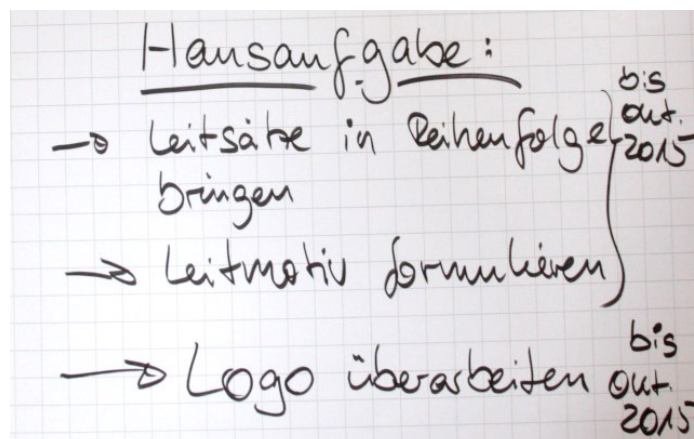 Hausaufgabe:
→ Leitsätze in Reihenfolge
bringen
→ Leitmotiv formulieren
bis
Okt.
2015
→ Logo überarbeiten
bis
Okt.
2015